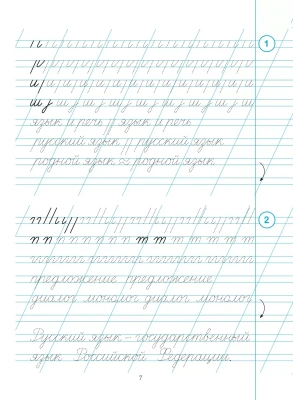 1
ш j ш j ш j ш j ш j ш j ш j ш j
язык и речь // язык и речь
русский язык // русский язык
родной язык ≈ родной язык
2
п п п п п п п п т т т т т т т т
предложение предложение
диалог монолог диалог монолог
Русский язык – государственный
язык Российской Федерации.
7